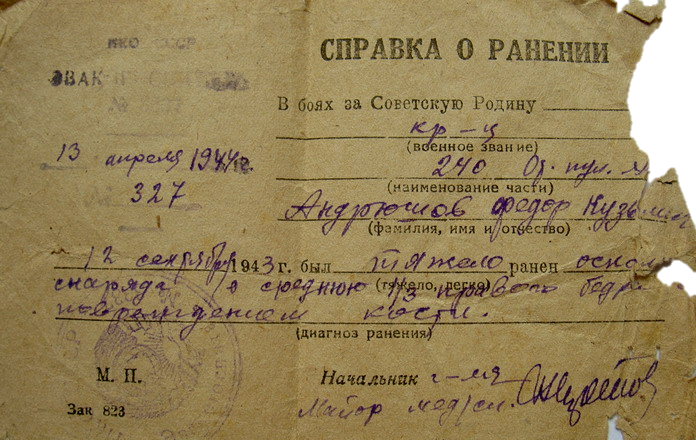 НКО СССР
ЭВАК
№
13 апреля 1944 г.
327
СПРАВКА О РАНЕНИИ
В боях за Советскую Родину
кр-ц
(военное звание)
240
(наименование части)
Андрюшов Федор Кузьми
(фамилия, имя и отчество)
12 сентября 1943 г. был тяжело ранен оскол
(тяжело, легко)
снаряда в среднюю 1/3 правого бедра
повреждением кости.
(диагноз ранения)
М. П.
Начальник г-ля
Майор мед/сл.
Зак 823